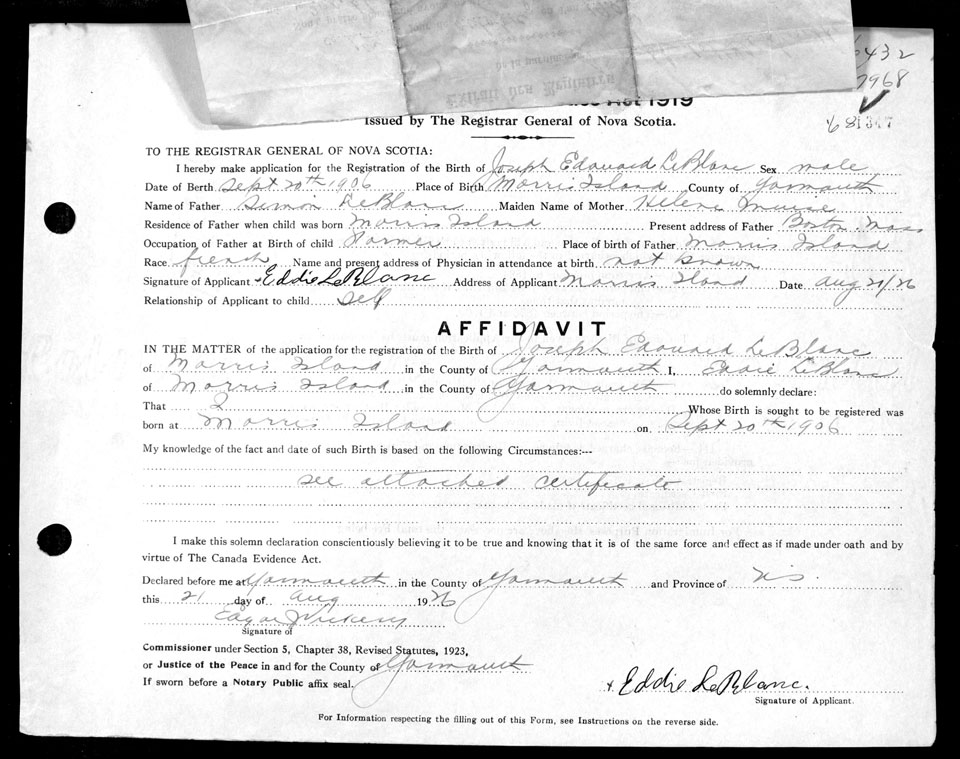 Extrait des Registres
Act 1919
6432
7968
Issued by The Registrar General of Nova Scotia.
TO THE REGISTRAR GENERAL OF NOVA SCOTIA:
I hereby make application for the Registration of the Birth of Joseph Edouard LeBlanc Sex male
Date of Berth Sept 20th 1906 Place of Birth Morris Island County of Yarmouth
Name of Father Simon LeBlanc Maiden Name of Mother Helene Muise
Residence of Father when child was born Morris Island Present address of Father Boston Mass
Occupation of Father at Birth of child Farmer Place of birth of Father Morris Island
Race french Name and present address of Physician in attendance at birth not known
Signature of Applicant x Eddie LeBlanc Address of Applicant Morris Iland Date Aug 21/26
Relationship of Applicant to child self
AFFIDAVIT
IN THE MATTER of the application for the registration of the Birth of Joseph Edouard LeBlanc
of Morris Island in the County of Yarmouth I, Eddie LeBlanc
of Morris Island in the County of Yarmouth do solemnly declare:
That I Whose Birth is sought to be registered was
born at Morris Island on Sept 20th 1906
My knowledge of the fact and date of such Birth is based on the following Circumstances:---
see attached certificate
I make this solemn declaration conscientiously believing it to be true and knowing that it is of the same force and effect as if made under oath and by
virtue of The Canada Evidence Act.
Declared before me at Yarmouth in the County of Yarmouth and Province of N.S.
this 21 day of Aug 1926
Edgar J Vickery
Signature of
Commissioner under Section 5, Chapter 38, Revised Statutes, 1923,
or Justice of the Peace in and for the County of Yarmouth
If sworn before a Notary Public affix seal.
x Eddie LeBlanc.
Signature of Applicant.
For Information respecting the filling out of this Form, see Instructions on the reverse side.